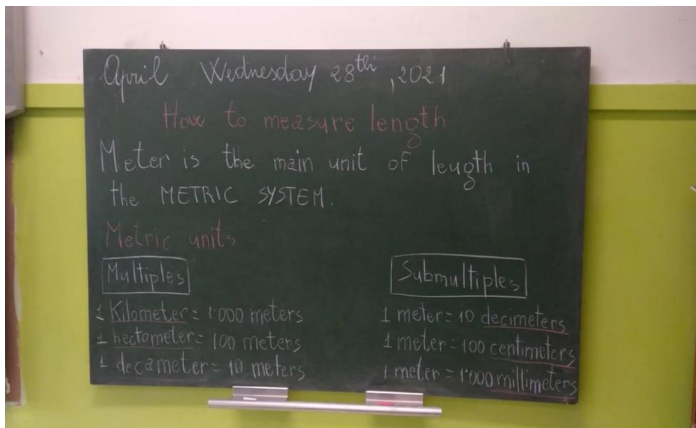 April Wednesday 28th, 2021
How to measure length
Meter is the main unit of length in
the METRIC SYSTEM.
Metric units
Multiples
1 Kilometer = 1'000 meters
1 hectometer = 100 meters
1 decameter = 10 meters
Submultiples
1 meter = 10 decimeters
1 meter = 100 centimeters
1 meter = 1'000 millimeters